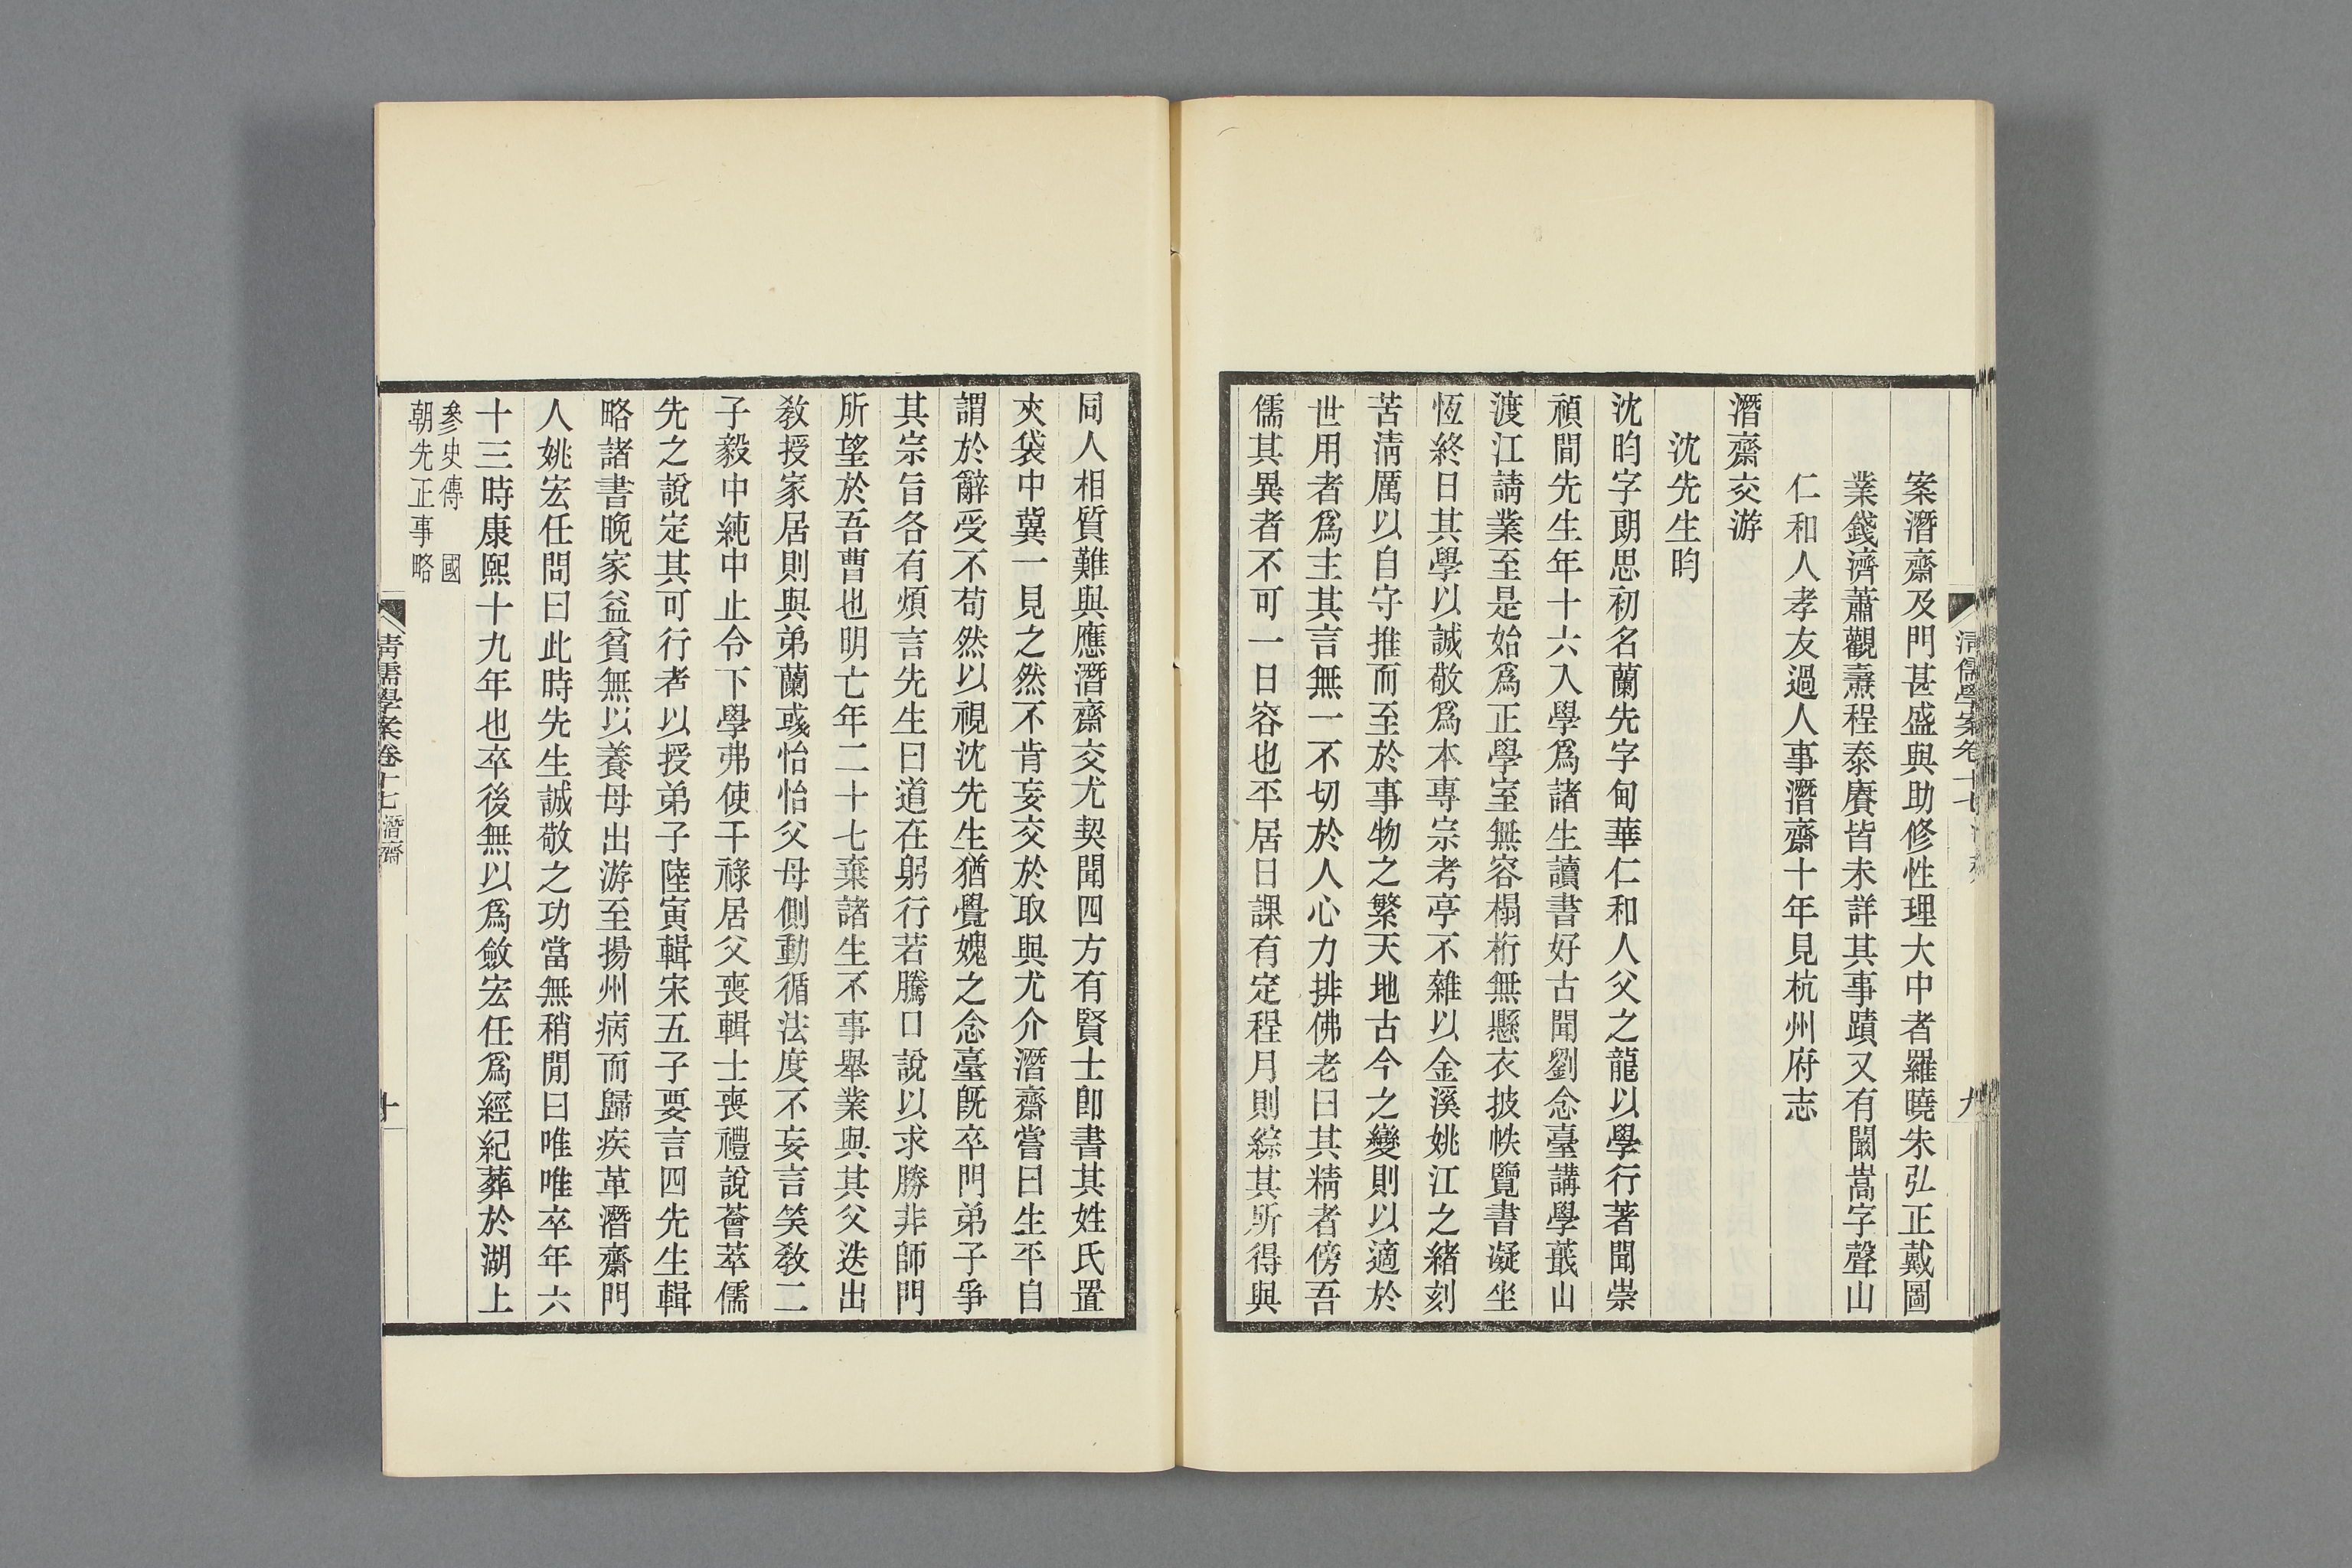 案潛齋及門甚盛與助修性理大中者羅曉朱弘正戴圖
業錢濟蕭觀燾程泰賡皆未詳其事蹟又有闞嵩字聲山
仁和人孝友過人事潛齋十年見杭州府志
潛齋交游
沈先生昀
沈昀字朗思初名蘭先字甸華仁和人父之龍以學行著聞崇
禎間先生年十六入學爲諸生讀書好古聞劉念臺講學蕺山
渡江請業至是始爲正學室無容榻桁無懸衣披帙覽書凝坐
恆終日其學以誠敬爲本專宗考亭不雜以金溪姚江之緒刻
苦淸厲以自守推而至於事物之繁天地古今之變則以適於
世用者爲主其言無一不切於人心力排佛老曰其精者傍吾
儒其異者不可一日容也平居日課有定程月則綜其所得與
同人相質難與應潛齋交尤契聞四方有賢士卽書其姓氏置
夾袋中冀一見之然不肯妄交於取與尤介潛齋嘗曰生平自
謂於辭受不苟然以視沈先生猶覺媿之念臺旣卒門弟子爭
其宗旨各有煩言先生曰道在躬行若騰口說以求勝非師門
所望於吾曹也明亡年二十七棄諸生不事舉業與其父迭出
敎授家居則與弟蘭彧怡怡父母側動循法度不妄言笑敎二
子毅中純中止令下學弗使干祿居父喪輯士喪禮說薈萃儒
先之說定其可行者以授弟子陸寅輯宋五子要言四先生輯
略諸書晚家益貧無以養母出游至揚州病而歸疾革潛齋門
人姚宏任問曰此時先生誠敬之功當無稍閒曰唯唯卒年六
十三時康熙十九年也卒後無以爲斂宏任爲經紀葬於湖上
參史傳　國
朝先正事略
淸儒學案卷十七 潛齋
十